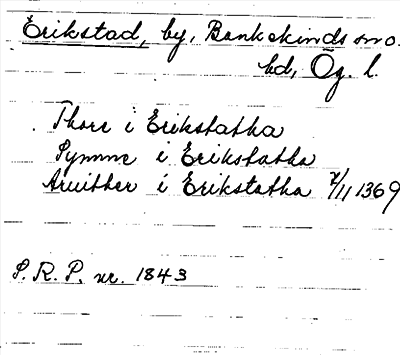 Erikstad, by, Bankekinds sn o.
hd, Ög. l.
Thore i Erikstatha
Symme i Erikstatha
Aruither i Erikstatha /11 1369
S. R. P. nr. 1843